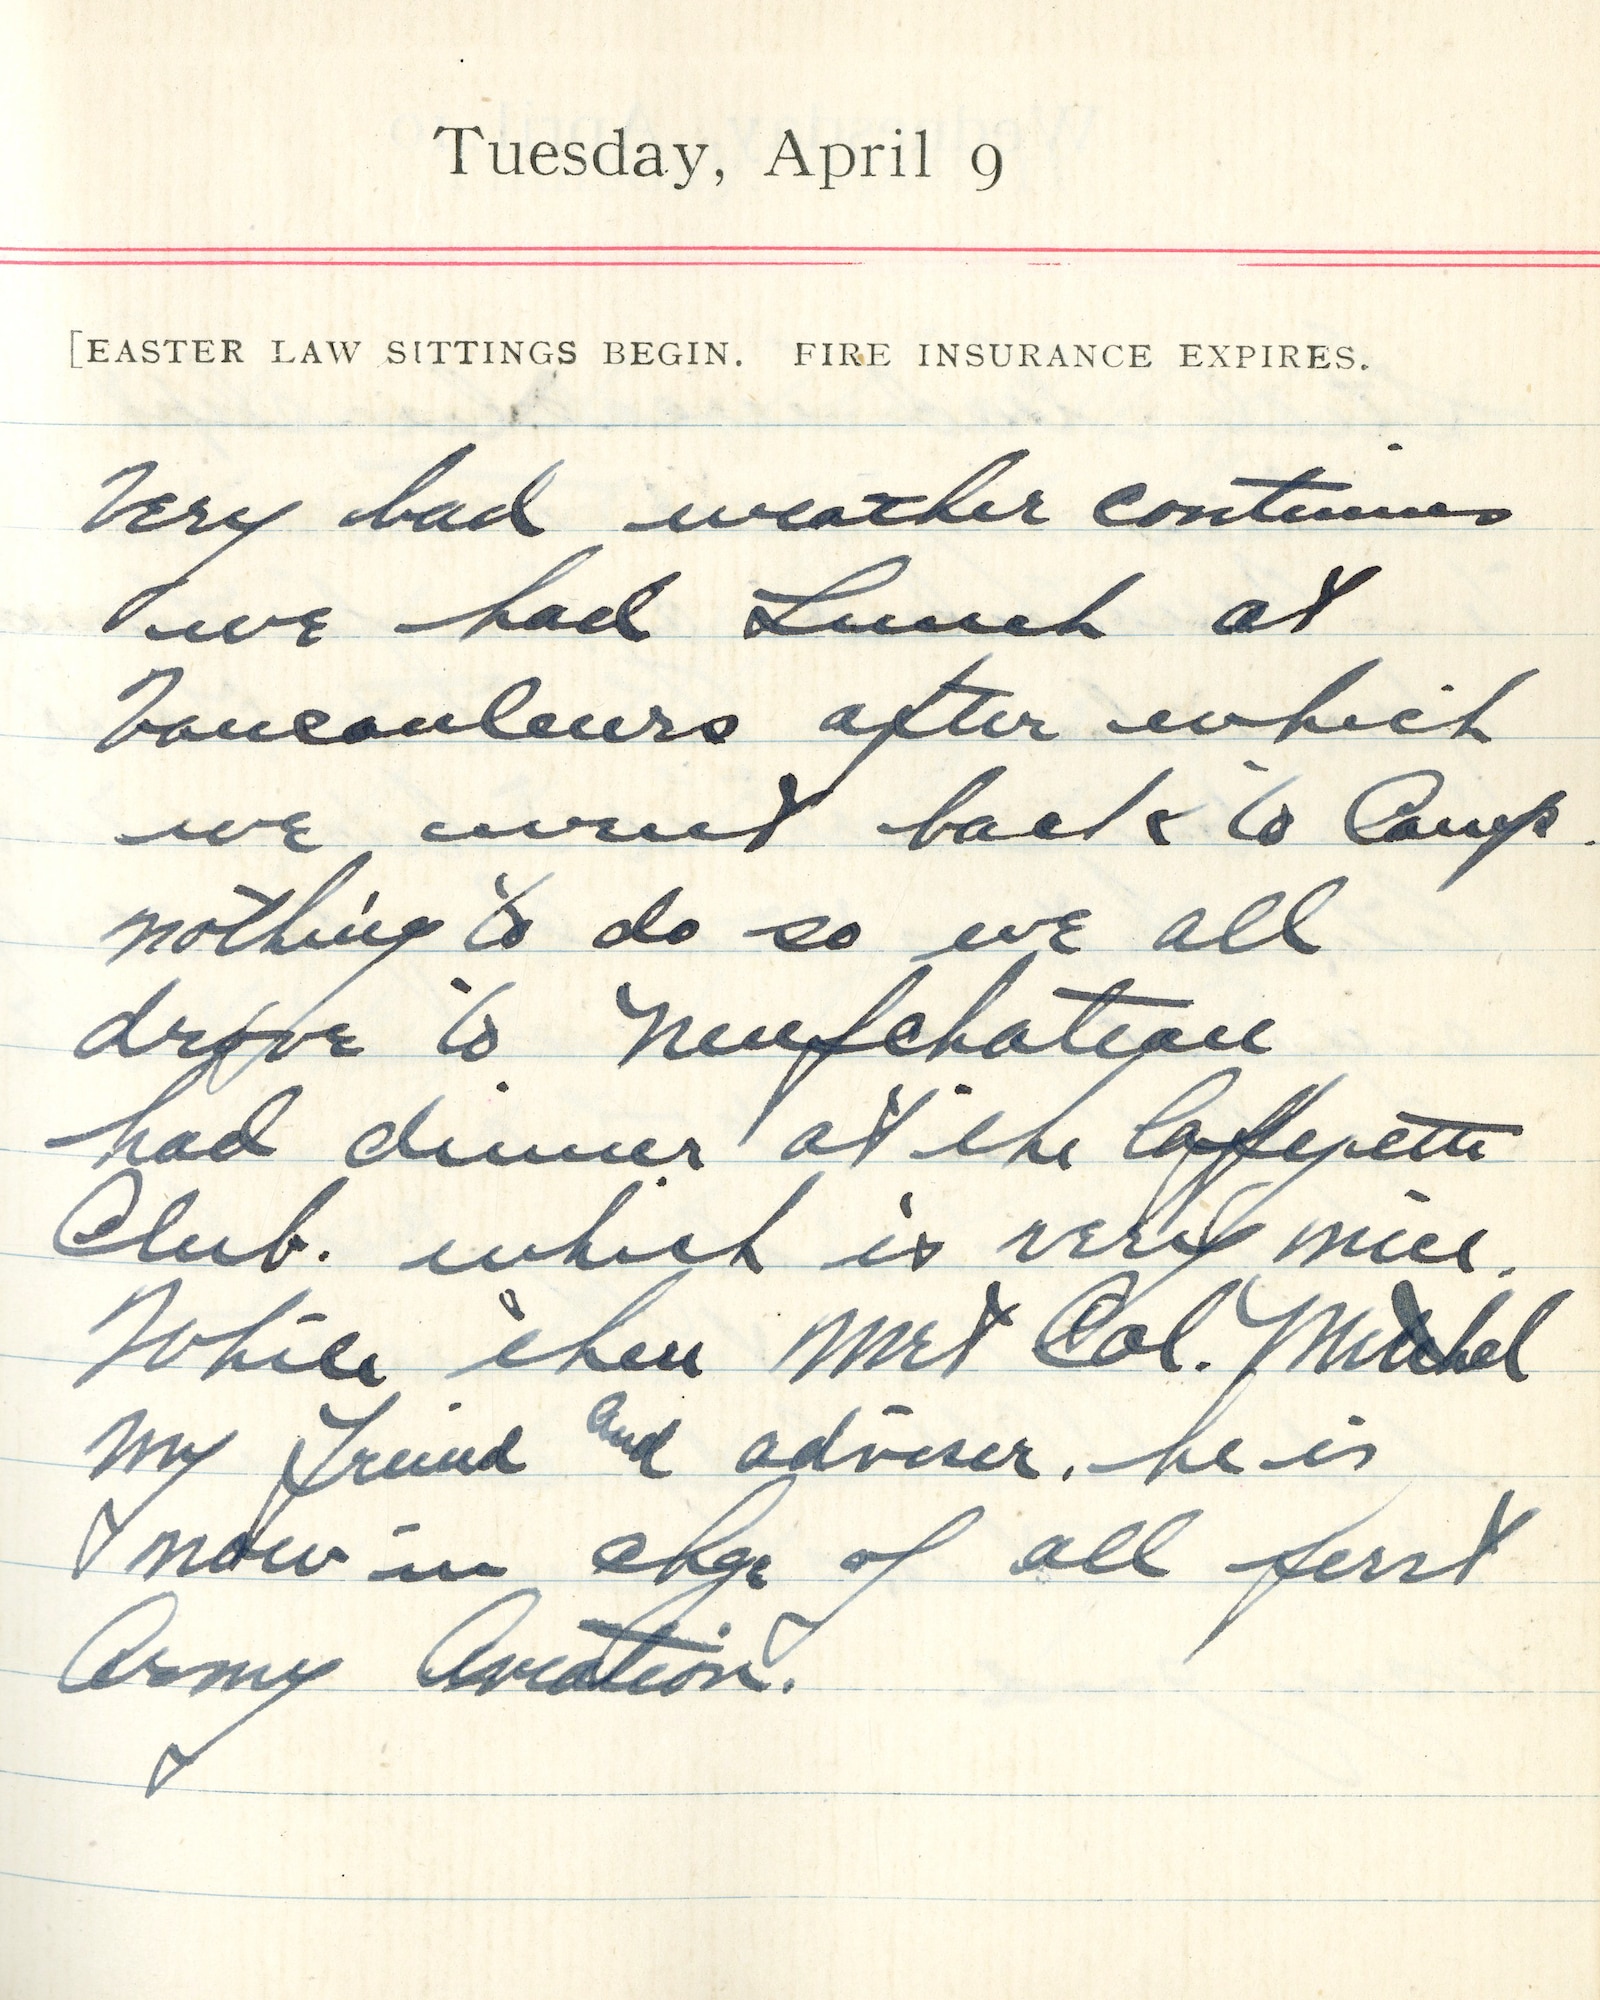 Tuesday, April 9
[EASTER LAW SITTINGS BEGIN. FIRE INSURANCE EXPIRES.
Very bad weather continues
we had Lunch at
Vaucouleurs after which
we went back to Camp.
nothing to do so we all
drove to Neufchateau
had dinner at the Lafayette
Club. which is very nice.
While there met Col. Mitchel
my friend and adviser. he is
now in chge of all first
Army Aviation.